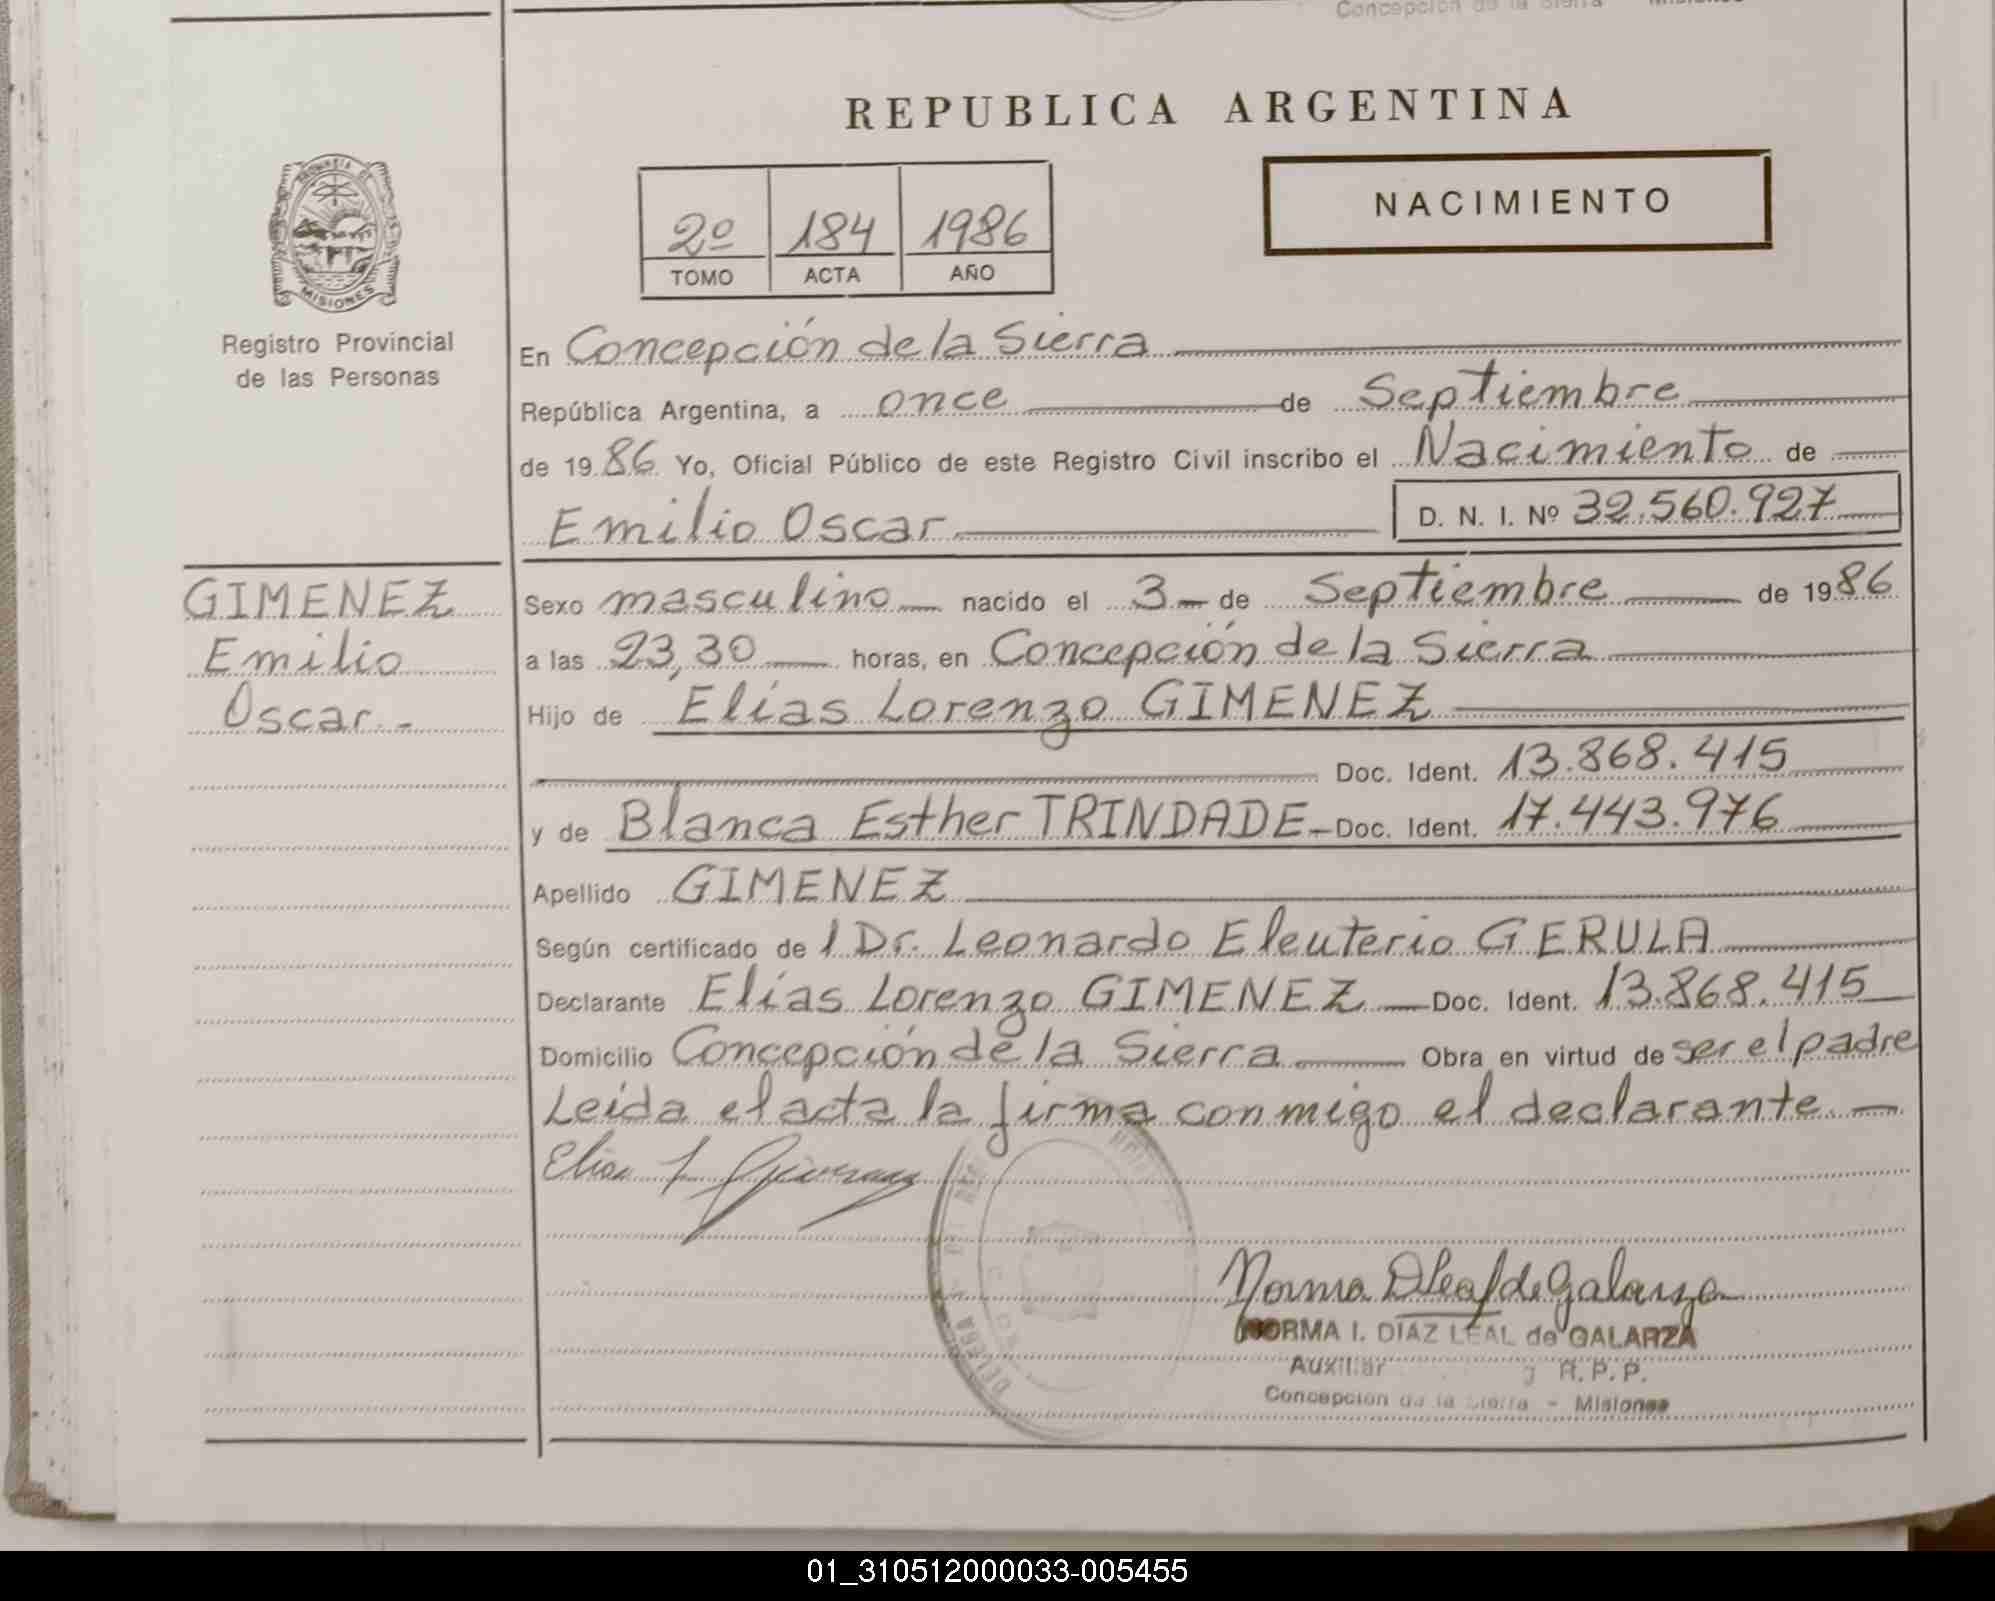 Concepción de la Sierra Misiones
REPUBLICA ARGENTINA
NACIMIENTO
2º 184 1986
TOMO ACTA AÑO
PROVINCIA DE
MISIONES
Registro Provincial
de las Personas
GIMENEZ
Emilio
Oscar.-
En Concepción de la Sierra
República Argentina, a once de Septiembre
de 1986 Yo, Oficial Público de este Registro Civil inscribo el Nacimiento de
Emilio Oscar D. N. I. Nº 32.560.927
Sexo masculino nacido el 3 de Septiembre de 1986
a las 23,30 horas, en Concepción de la Sierra
Hijo de Elías Lorenzo GIMENEZ
Doc. Ident. 13.868.415
y de Blanca Esther TRINDADE Doc. Ident. 17.443.976
Apellido GIMENEZ
Según certificado de l Dr. Leonardo Eleuterio GERULA
Declarante Elías Lorenzo GIMENEZ Doc. Ident. 13.868.415
Domicilio Concepción de la Sierra Obra en virtud de ser el padre
Leída el acta la firma conmigo el declarante.
Elias L Gimenez
Norma DLeal de Galarza
NORMA I. DIAZ LEAL de GALARZA
Auxiliar R.P.P.
Concepcion de la Sierra - Misiones
01_310512000033-005455